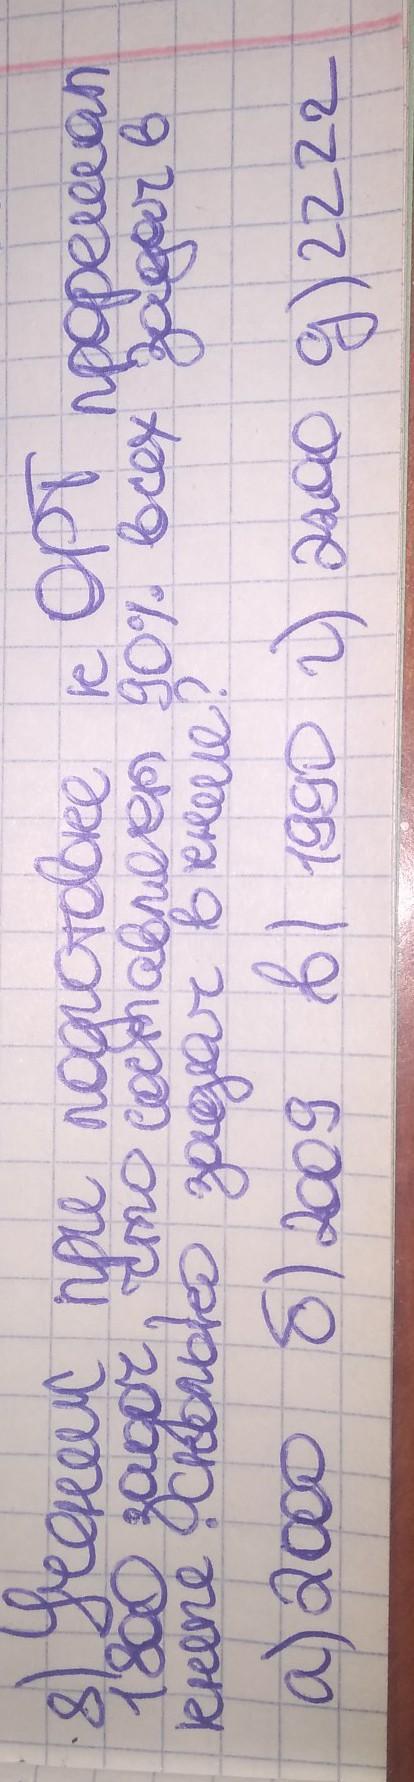 8) Ученик при подготовке к ОРТ прорешал
1800 задач, что составляет 90% всех задач в
книге. Сколько задач в книге?
а) 2000 б) 2009 в) 1990 г) 2100 д) 2222